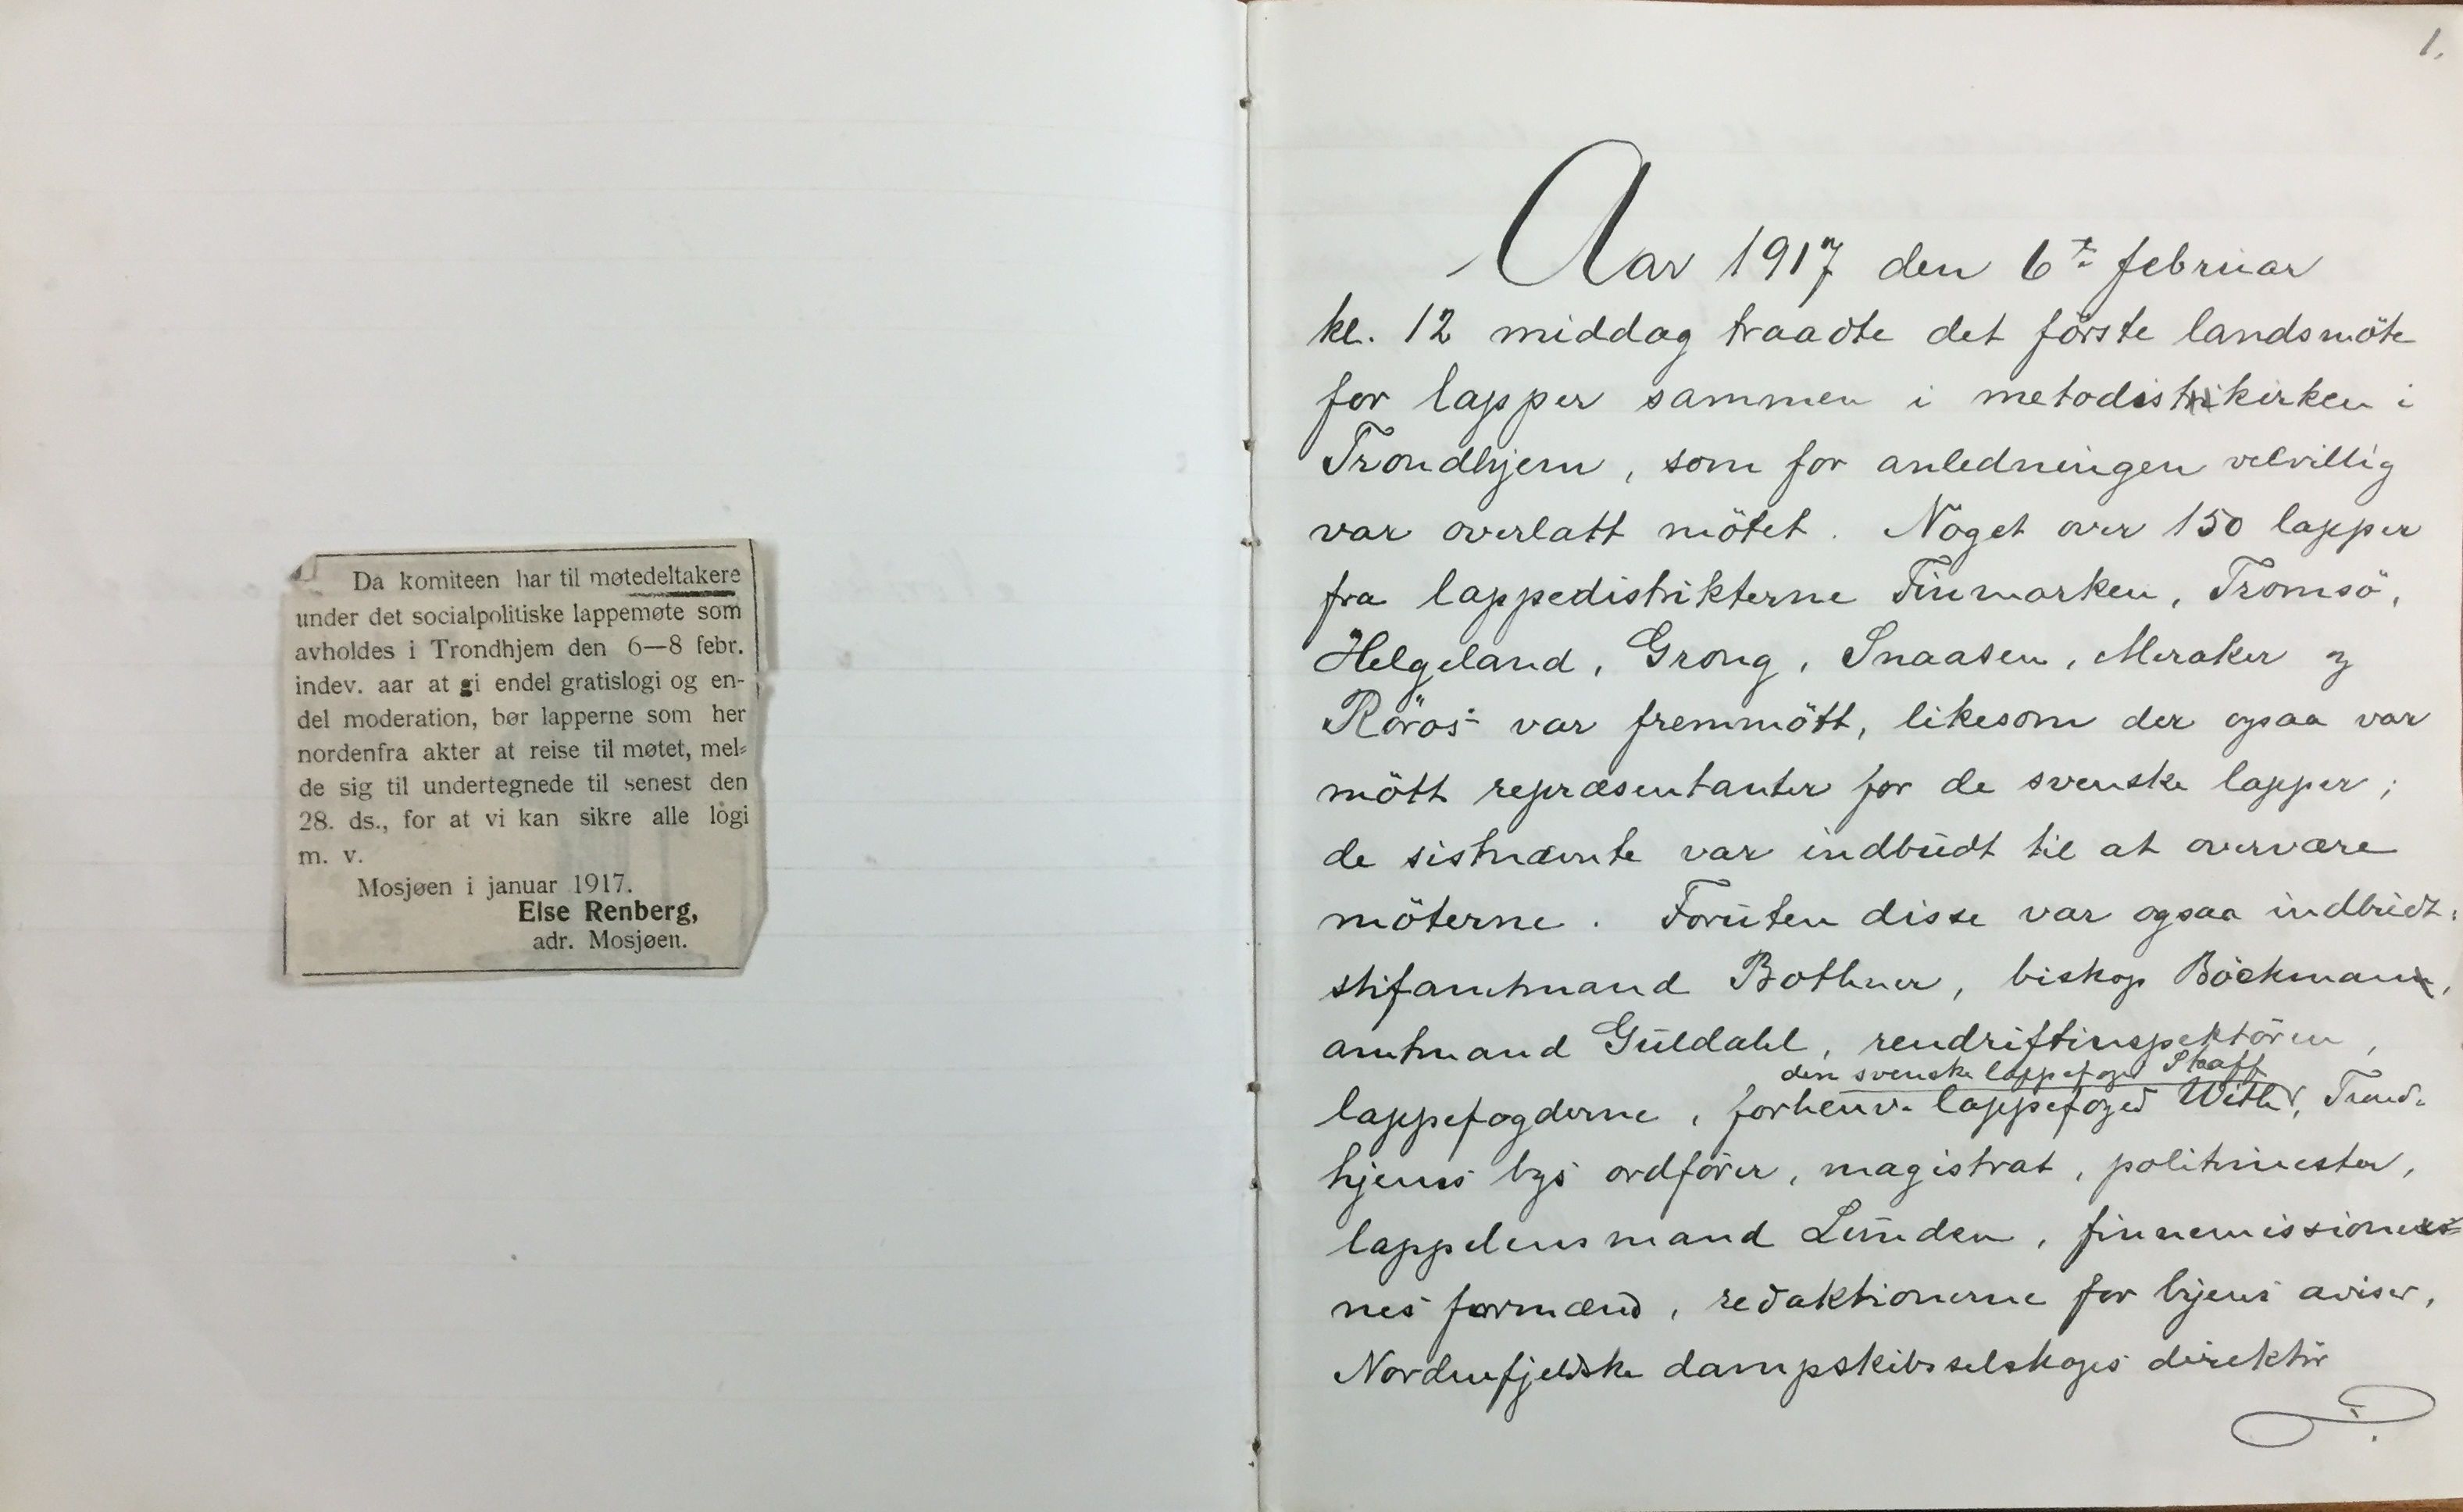 Da komiteen har til møtedeltakere
under det socialpolitiske lappemøte som
avholdes i Trondhjem den 6—8 febr.
indev. aar at gi endel gratislogi og en-
del moderation, bør lapperne som her
nordenfra akter at reise til møtet, mel-
de sig til undertegnede til senest den
28. ds., for at vi kan sikre alle logi
m. v.
Mosjøen i januar 1917.
Else Renberg,
adr. Mosjøen.
1.
Aar 1917 den 6te februar
kl. 12 middag traadte det förste landsmöte
for lapper sammen i metodistkirken i
Trondhjem, som for anledningen velvillig
var overlatt mötet. Noget over 150 lapper
fra lappedistrikterne Finmarken, Tromsö,
Helgeland, Grong, Snaasen, Meraker og
Röros var fremmött, likesom der ogsaa var
mött repræsentanter for de svenske lapper;
de sistnævnte var indbudt til at overvære
möterne. Foruten disse var ogsaa indbudt:
stifamtmand Bothner, biskop Böckman,
amtmand Guldahl, rendriftinspektören,
den svenske lappefoged Staaff
lappefogderne, forhenv. lappefoged Trond-
hjems bys ordförer, magistrat, politimester,
lappelensmand Lunden, finnemissioner-
nes formænd, redaktionerne for byens aviser,
Nordenfjeldske dampskibsselskaps direktör